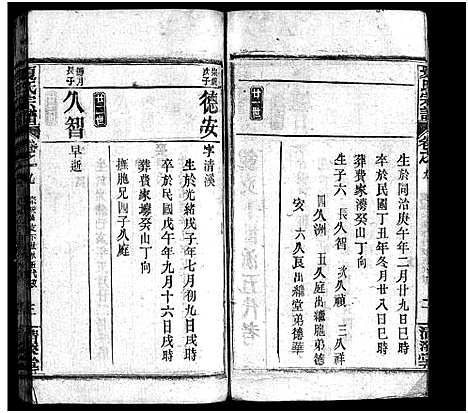 生於同治庚午年二月廿九日巳時
卒於民國丁丑年冬月廿八日巳時
葬費家灣癸山丁向
生子六 長久智 次久禎 三久祥
四久洲 五久庭出繼胞弟德
安 六久良出繼堂弟德華
廿一世
次子
德安
字清溪
生於光緒戊子年七月初九日戌時
卒於民國戊午年九月十六日戌時
葬費家灣癸山丁向
撫胞兄四子久庭
廿二世
長子
久智
早逝
夏氏宗譜